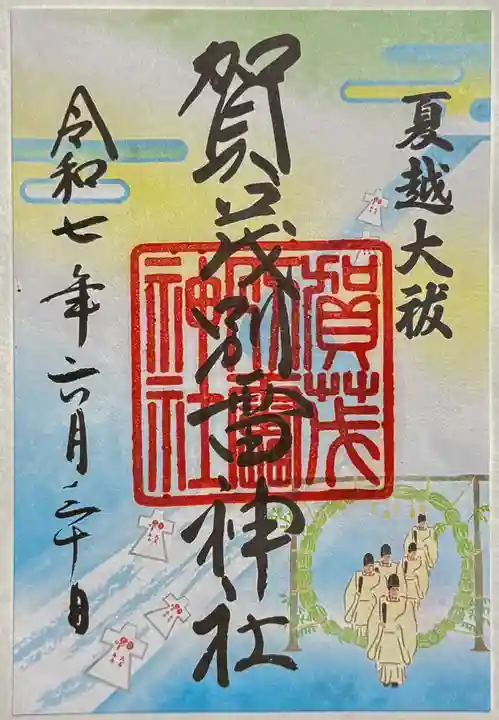 夏越大祓
賀茂別雷神社
賀茂
別雷
神社
令和七年六月三十日